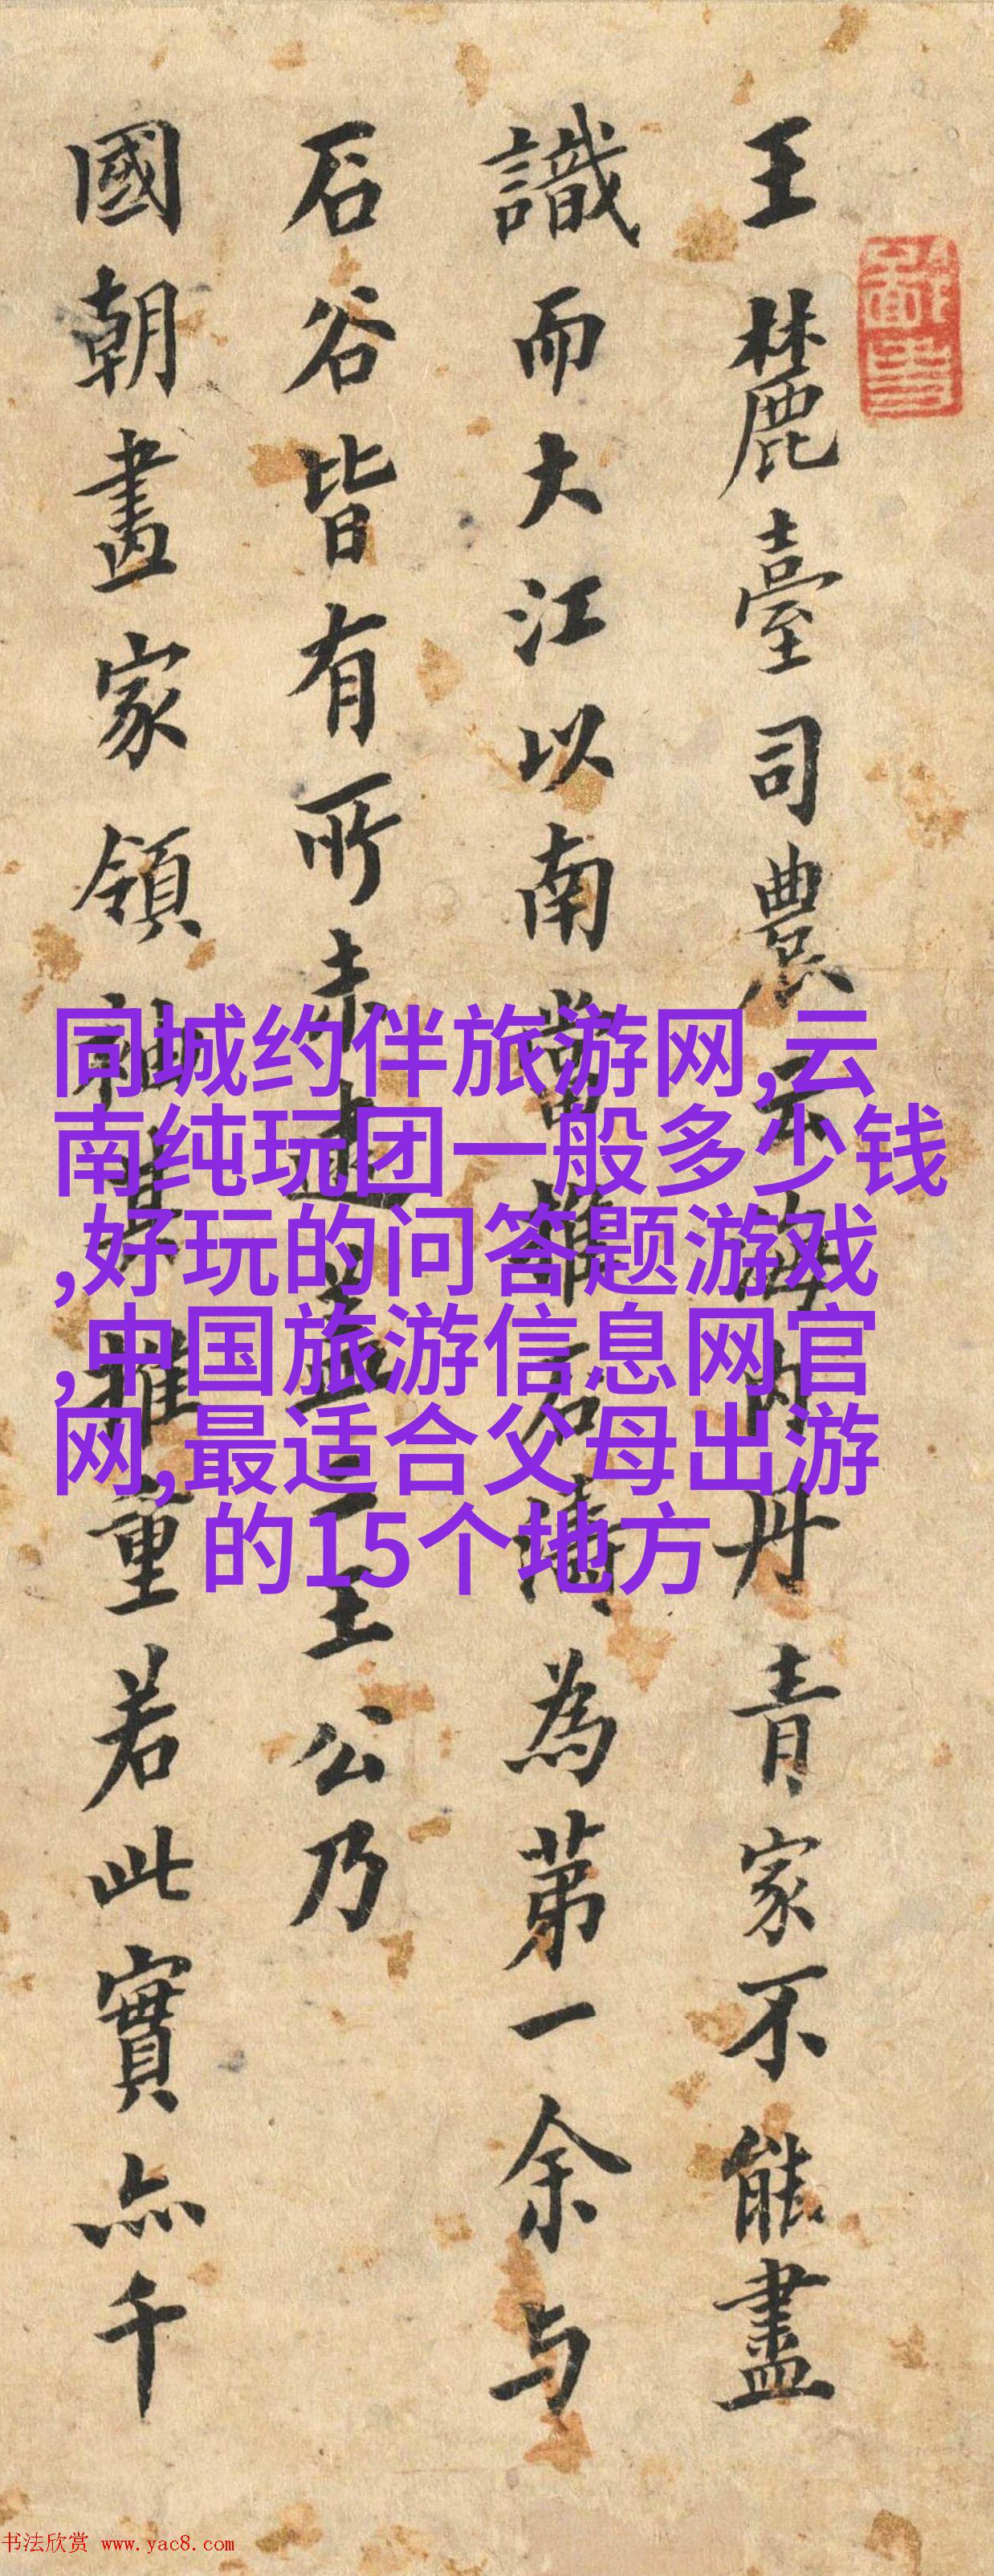 王麓臺司農云海內丹青家不能盡
識而大江以南當推石濤為第一余与
石谷皆有所未逮盖二王公乃
國朝畫家領袖其推重若此實亦千
同城约伴旅游网,云
南纯玩团一般多少钱
,好玩的问答题游戏
,中国旅游信息网官
网,最适合父母出游
的15个地方
书法欣赏 www.yac8.com